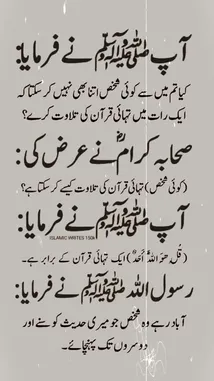 آپ ﷺ نے فرمایا:
کیا تم میں سے کوئی شخص اتنا بھی نہیں کر سکتا کہ
ایک رات میں تہائی قرآن کی تلاوت کرے؟
صحابہ کرامؓ نے عرض کی:
(کوئی شخص) تہائی قرآن کی تلاوت کیسے کر سکتا ہے؟
آپ ﷺ نے فرمایا:
ISLAMIC WRITES 1508
(قُلْ هُوَ اللّٰهُ اَحَدٌ) ایک تہائی قرآن کے برابر ہے۔
رسول اللہ ﷺ نے فرمایا:
آباد رہے وہ شخص جو میری حدیث کو سنے اور
دوسروں تک پہنچائے۔